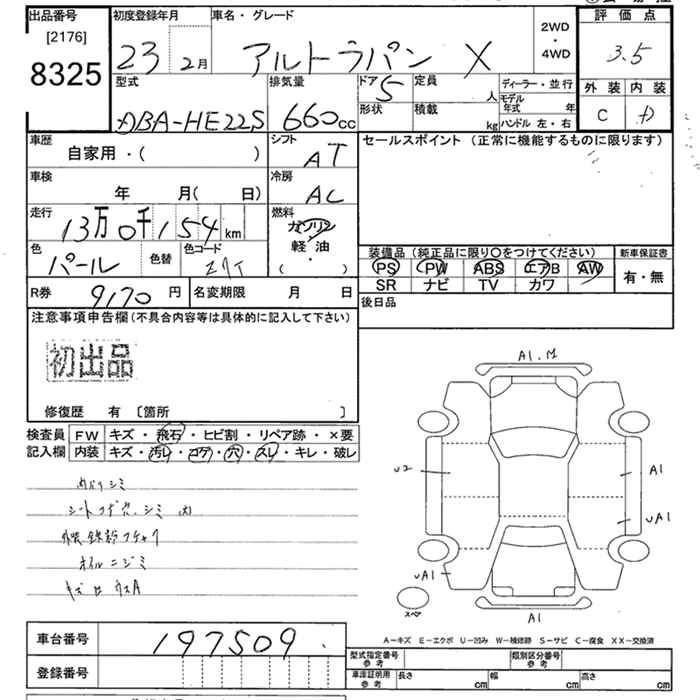 出品番号
[2176]
8325
初度登録年月
23 2月
車名・グレード
アルトラパン X
2WD
・
4WD
評価点
3.5
外装 内装
C D
型式
DBA-HE22S
排気量
660cc
ドア 5
形状
定員 人
積載 kg
ディーラー・並行
モデル年式 年
ハンドル 左・右
車歴
自家用・( )
シフト
AT
車検
年 月( 日)
冷房
AC
走行
13万0千154km
燃料
ガソリン
軽・油
( )
色
パール
色替
色コード
R券 9170円
名変期限 月 日
セールスポイント (正常に機能するものに限ります)
装備品 (純正品に限り〇をつけてください)
PS PW ABS エアB AW
SR ナビ TV カワ
新車保証書
有・無
後日品
注意事項申告欄(不具合内容等は具体的に記入して下さい)
初出品
修復歴 有 〔箇所 〕
検査員
記入欄
FW キズ・飛石・ヒビ割・リペア跡・×要
内装 キズ・汚レ・コゲ・穴・スレ・キレ・破レ
オイルニジミ
A1.M
U2
A1
UA1
UA1
A1
スペア
A−キズ E−エクボ U−凹み W−補修跡 S−サビ C−腐食 XX−交換済
車台番号 197509
登録番号
型式指定番号
参考
類別区分番号
参考
車庫証明用
参考
長さ cm 幅 cm 高さ cm